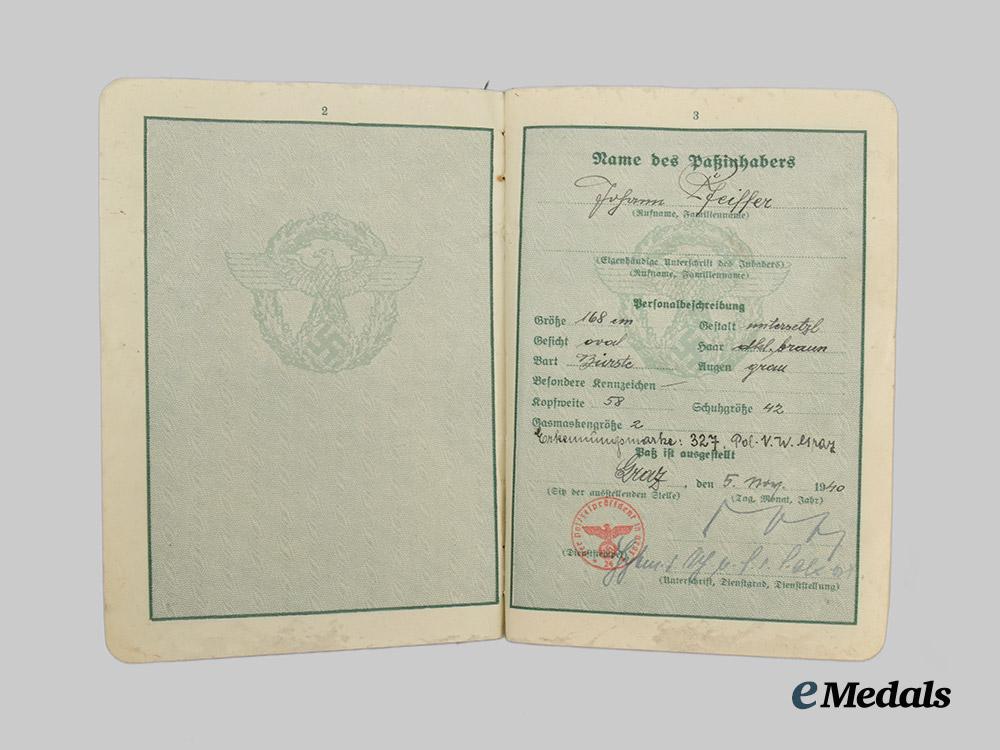 2
3
Name des Paßinhabers
Johann Pfeiffer
(Rufname, Familienname)
(Eigenhändige Unterschrift des Inhabers)
(Rufname, Familienname)
Personalbeschreibung
Größe 168 cm Gestalt untersetzt
Gesicht oval Haar dkl. braun
Bart Bürste Augen grau
Besondere Kennzeichen —
Kopfweite 58 Schuhgröße 42
Gasmaskengröße 2
Erkennungsmarke: 327, Pol.-V.W. Graz
Paß ist ausgestellt
Graz, den 5. Nov. 1940
(Sitz der ausstellenden Stelle) (Tag, Monat, Jahr)
Der Polizeipräsident in Graz
24
(Dienststempel)
(Unterschrift, Dienstgrad, Dienststellung)
eMedals